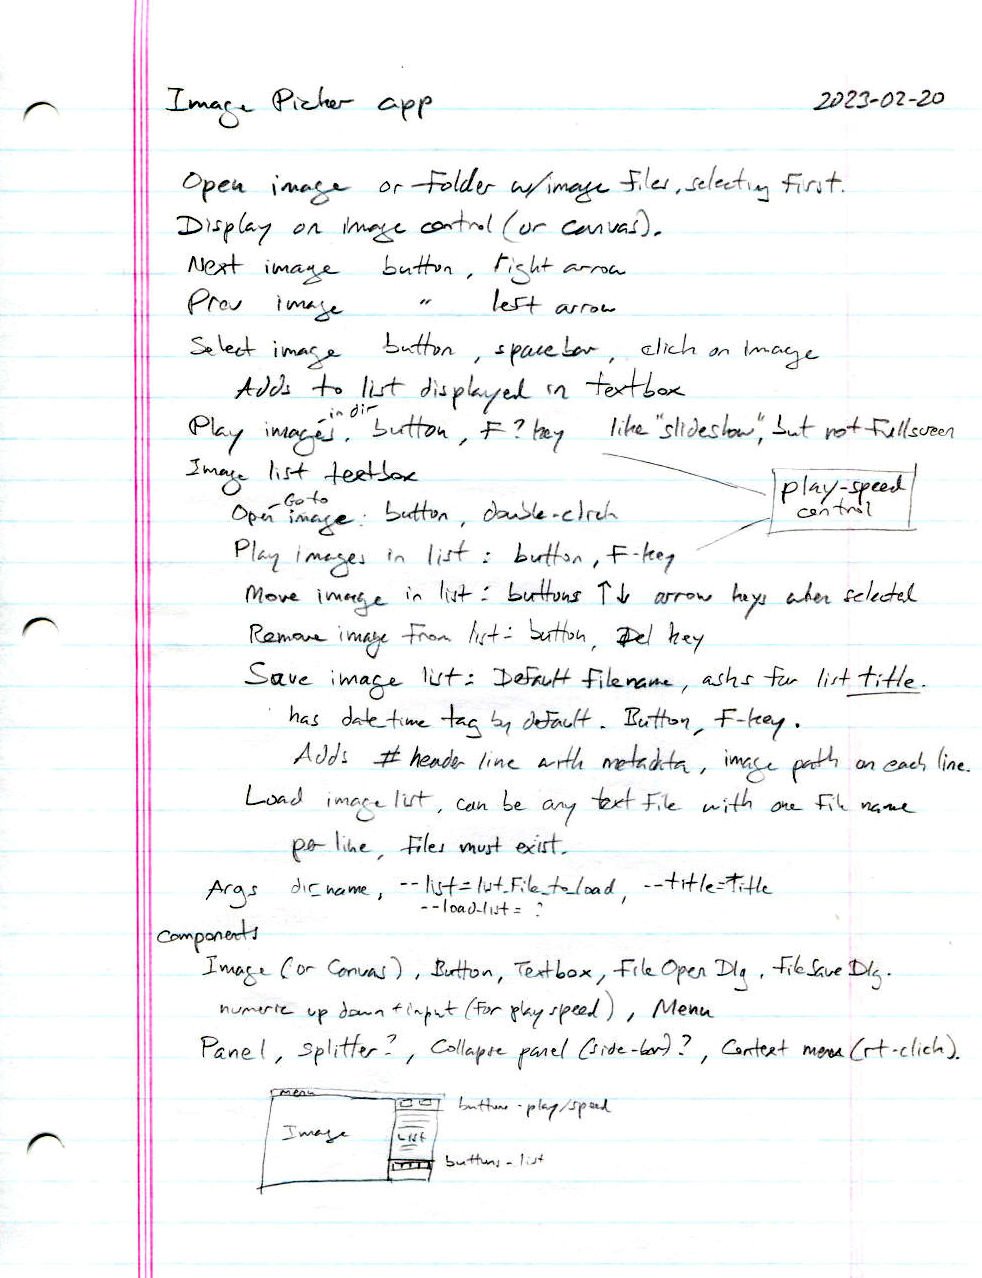 Image Picker app 2023-02-20
Open image or folder w/image files, selecting first.
Display on image control (or canvas).
Next image button, right arrow
Prev image " left arrow
Select image button, spacebar, click on image
Adds to list displayed in textbox
Play images in dir, button, F? key like "slideshow", but not fullscreen
Image list textbox
play-speed control
Open - Go to image: button, double-click
Play images in list: button, F-key
Move image in list: buttons ↑↓ arrow keys when selected
Remove image from list: button, Del key
Save image list: Default filename, asks for list title.
has datetime tag by default. Button, F-key.
Adds # header line with metadata, image path on each line.
Load image list, can be any text file with one file name
per line, files must exist.
Args dir_name, --list=list_file_to_load, --title=Title
--load-list= ?
Components
Image (or Canvas), Button, Textbox, File Open Dlg, File Save Dlg.
numeric up down + input (for play speed), Menu
Panel, splitter?, Collapse panel (side-bar)?, Context menu (rt-click).
menu
buttons - play/speed
Image
LIST
buttons - list